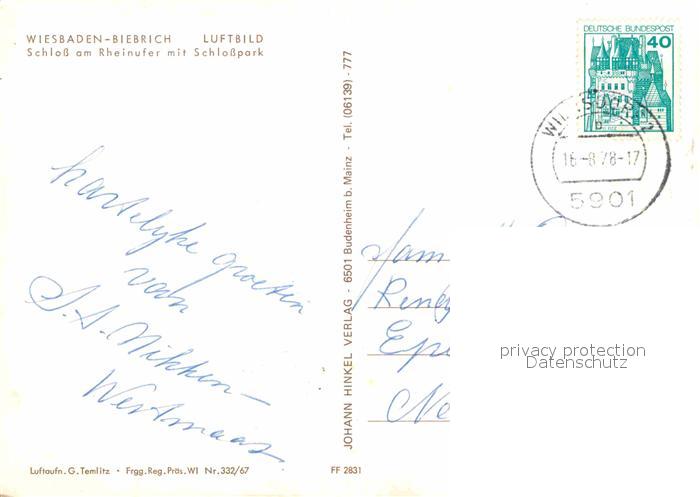 WIESBADEN-BIEBRICH LUFTBILD
Schloß am Rheinufer mit Schloßpark
DEUTSCHE BUNDESPOST
40
16-8.78-17
5901
hartelyke groeten
van
Westmaas
JOHANN HINKEL VERLAG - 6501 Budenheim b. Mainz - Tel. (06139) - 777
Fam
privacy protection
Datenschutz
Luftaufn. G. Temlitz • Frgg. Reg. Präs. WI Nr. 332/67
FF 2831